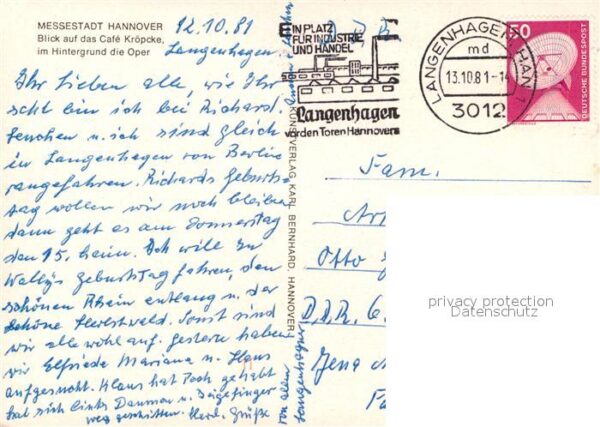 MESSESTADT HANNOVER
Blick auf das Café Kröpcke,
im Hintergrund die Oper
12.10.81
Langenhagen
Ihr Lieben alle, wie Ihr
seht bin ich bei Richard.
u. ich sind gleich
in Langenhagen von Berlin
rangefahren. Richards Geburts
tag wollen wir noch bleiben
dann geht es am Donnerstag
den 15. heim. Ich will zu
Wallys Geburtstag fahren, den
schönen Rhein entlang u. der
schöne Herbstwald. Sonst sind
wir alle wohl auf. Gestern haben
wir Elfriede Mariana u. Klaus
aufgesucht. Klaus hat Pech gehabt
hat sich links Daumen u. Zeigefinger
weg geschnitten. Herzl. Grüße
von allen
Langenhagener
KUNSTVERLAG KARL BERNHARD, HANNOVER
EIN PLATZ
FÜR INDUSTRIE
UND HANDEL
Langenhagen
vor den Toren Hannovers
LANGENHAGEN, HAN 1
md
13.10.81-14
3012
50
DEUTSCHE BUNDESPOST
Fam.
Otto
D.D.R. 6
Jena
privacy protection
Datenschutz